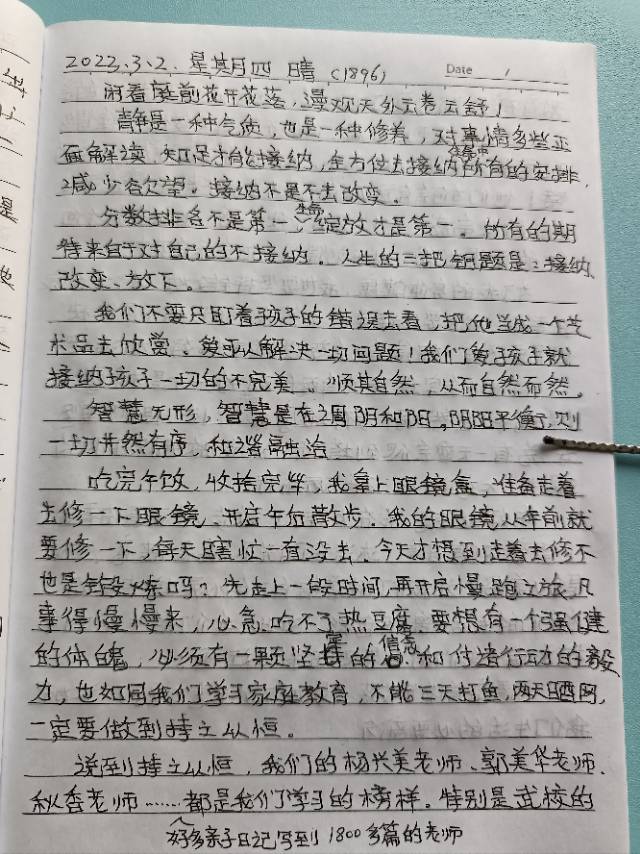 2023.3.2.星期四 晴 (1896)
Date /
闲看庭前花开花落,漫观天外云卷云舒!
静是一种气质,也是一种修养,对事情多些正
面解读.知足才能接纳,全方位去接纳生命中所有的安排,
减少各欠望。接纳不是不去改变。
分数排名不是第一,生命绽放才是第一。所有的期
待来自于对自己的不接纳。人生的三把钥题是:接纳、
改变、放下。
我们不要只盯着孩子的错误去看,把他当成一个艺
术品去欣赏、复平以解决一切问题!我们爱孩子就
接纳孩子一切的不完美。顺其自然,从而自然而然。
智慧无形,智慧是在调阴和阳,阴阳平衡了,则
一切井然有序,和谐融洽
吃完午饭,收拾完毕,我拿上眼镜盒,准备走着
去修一下眼镜、开启午后散步.我的眼镜从年前就
要修一下,每天瞎忙一直没去.今天才想到走着去修不
也是锻炼吗?先走上一段时间,再开启慢跑之旅,凡
事得慢慢来,心急吃不了热豆腐.要想有一个强健
的体魄,必须有一颗坚定的信念.和付诸行动的毅
力,也如同我们学习家庭教育,不能三天打鱼,两天晒网,
一定要做到持之以恒。
说到持之以恒,我们的杨兴美老师、郭美华老师.
秋香老师……都是我们学习的榜样。特别是武校的
好多亲子日记写到1800多篇的老师